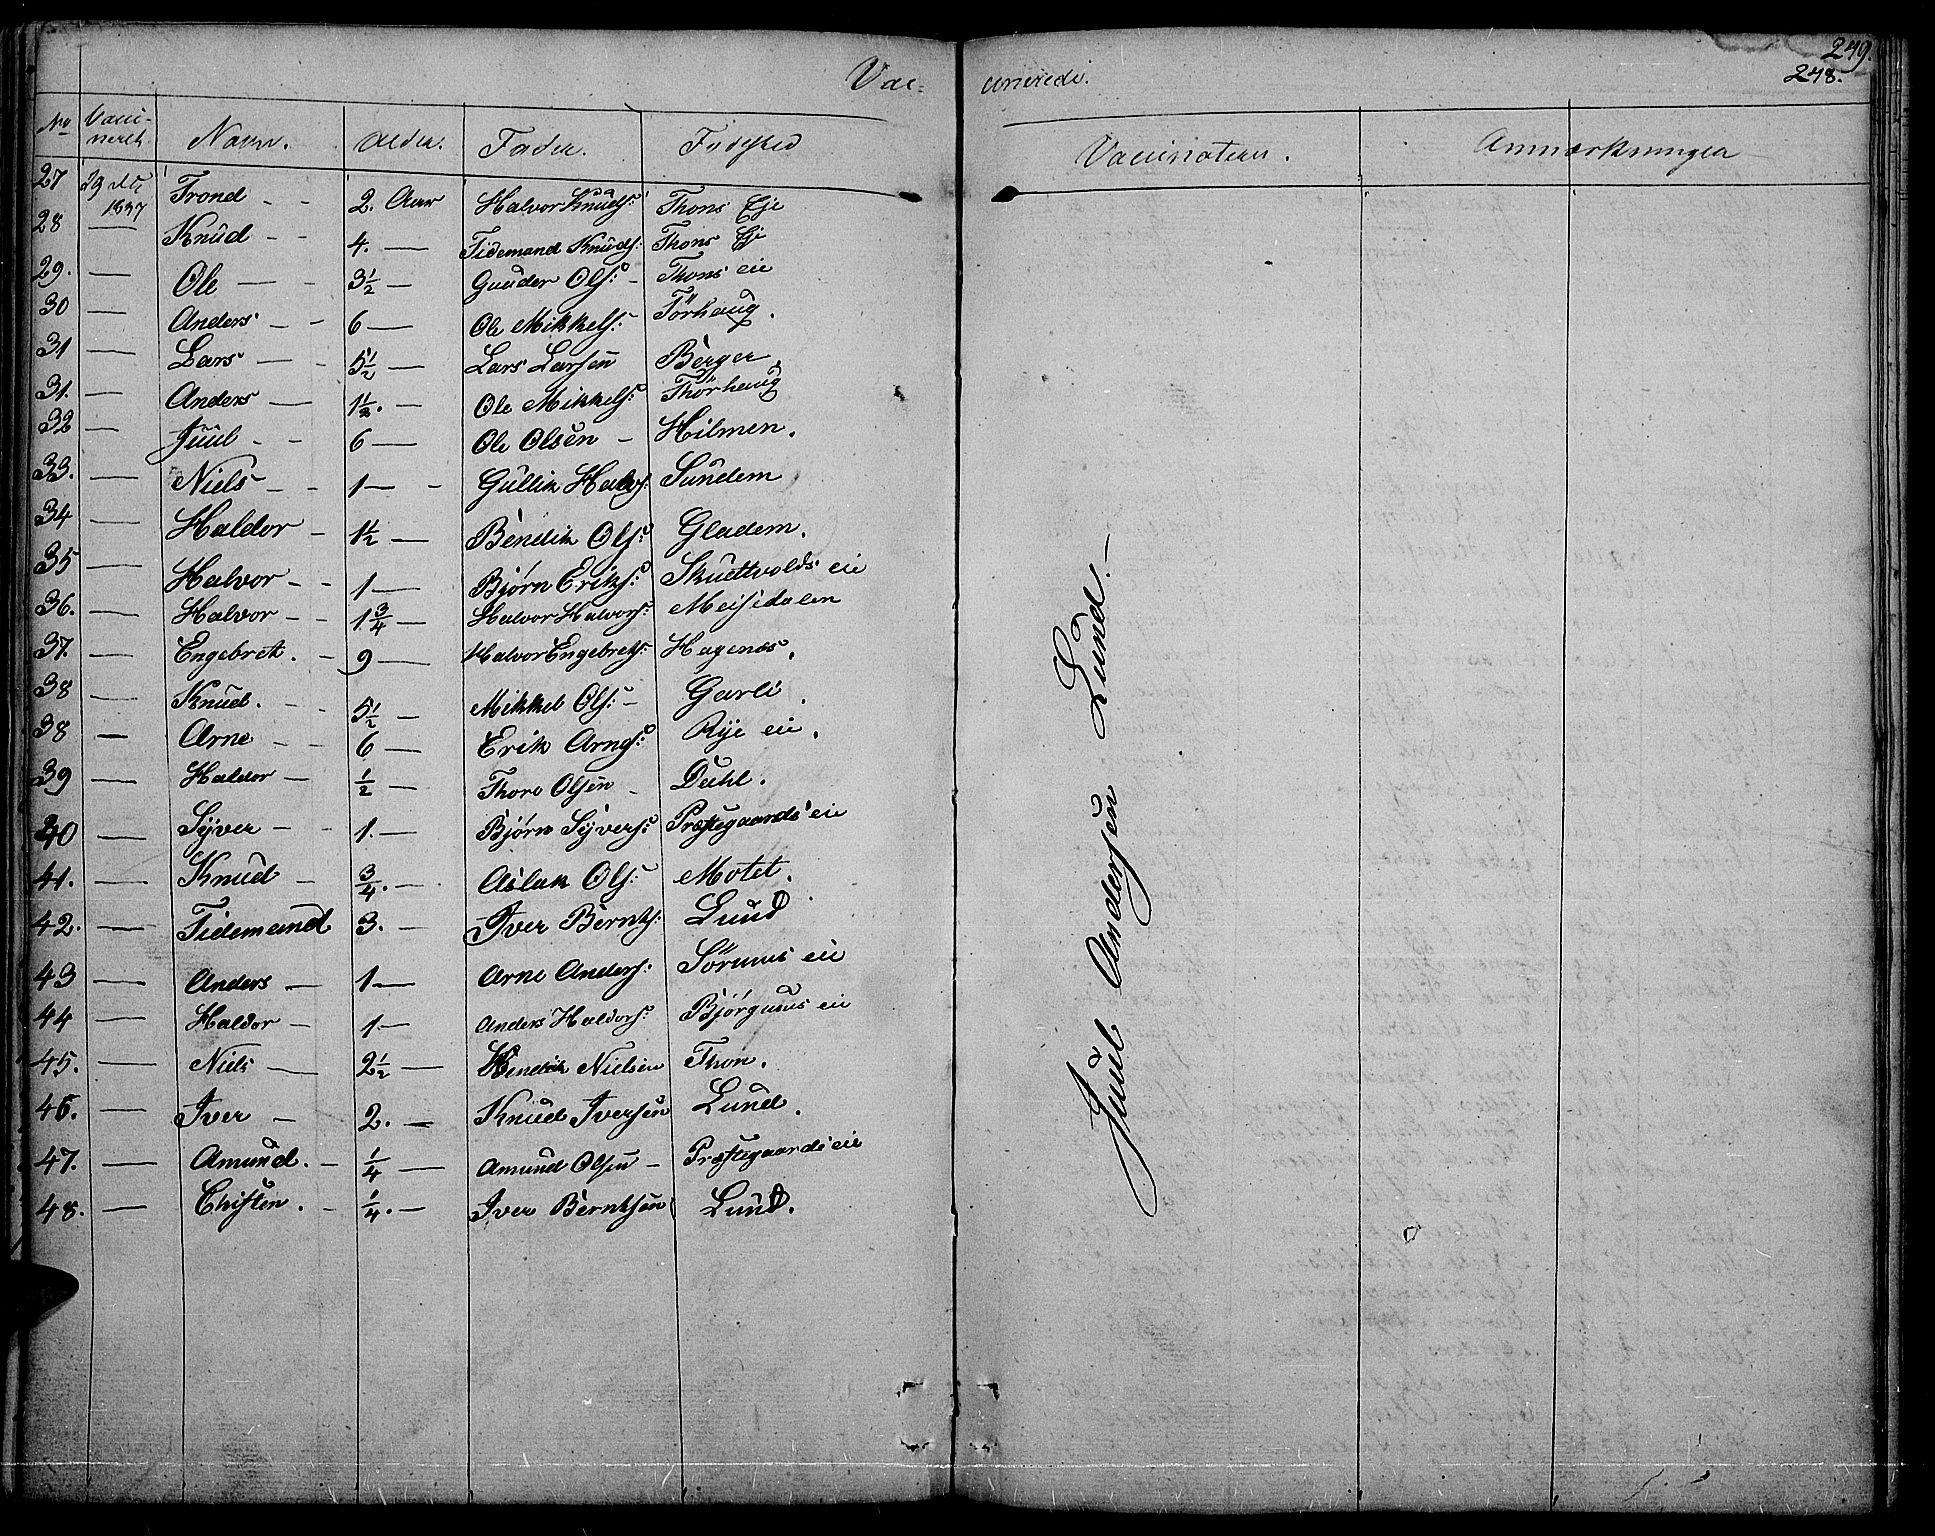 Vac- cinerede.
249.
248.
No Vacci-neret Navn. Alder. Fader. Fødested Vaccinateur. Anmærkninger
27 1837 Trond - - 2. Aar Halvor Knuds: Thons Eje
28 — Knud - - 4. — Tidemand Knuds: Thons Eje
29. — Ole — - 3½ — Gunder Ols: - Thons eie
30 — Anders - - 6 — Ole Mikkels: Förhaug.
31 — Lars — - 5½ — Lars Larsen Berger
31. — Anders — 1½. — Ole Mikkels: Thörhaug
32 — Juul - - 6 — Ole Olsen - Hilmen.
33. — Niels - - 1 — - Gullik Halvs: Sundem
34 — Haldor - 1½ — Bendik Ols: Gladem.
35 — Halvor - - 1 — Bjørn Eriks: Skuttvolds eie
36. — Halvor - - 1¾ — Halvor Halvors: Meisdalen
37. — Engebret. - 9 — Halvor Engebrets: Hagenæs.
38 — Knud. - - 5½ — Mikkel Ols: - Garli.
38 — Arne - - 6 — Erik Arnes: Rye eie.
39 — Haldor — ½ — Thore Olsen - Dahl.
40 — Syver - - 1. — Bjørn Syvers: Præstegaards eie
41. — Knud - ¾. — Aslak Ols: Motet.
42. — Tidemand 3. — Iver Bernts: Lund
43 — Anders — 1 — Arne Anders: Sörums eie
44 — Haldor — 1 — Anders Haldors: Bjørguus eie
45. — Niels — 2½ — Hendrik Nielsen Thon.
46. — Iver — 2. — Knud Iversen Lund.
47. — Amund. - ¼ — Amund Olsen - Præstegaards eie
48. — Chisten. - ¼. — Iver Berntsen Lund.
Juul Andersen Lund. —